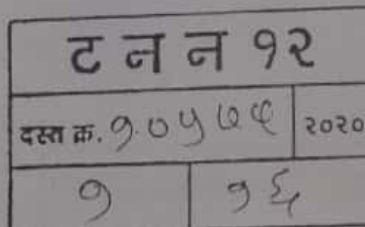 ट न न १२
दस्त क्र. १०५७९ २०२०
१ १६